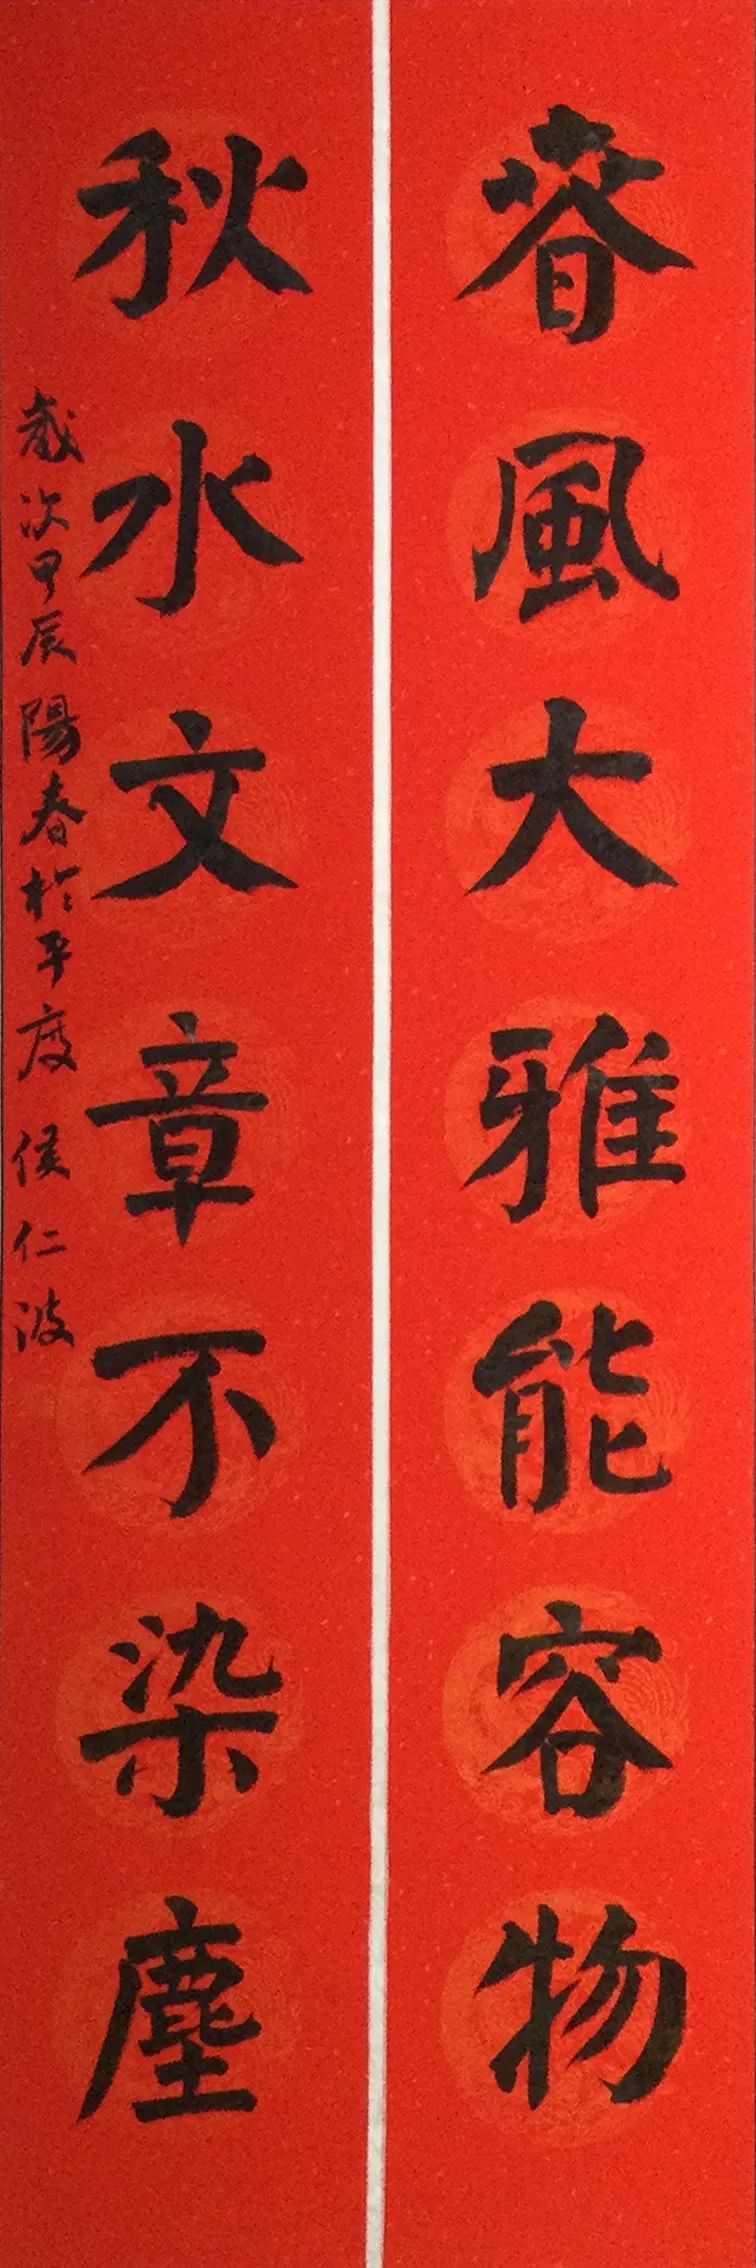 春風大雅能容物
秋水文章不染塵
歲次甲辰陽春於平度 侯仁波